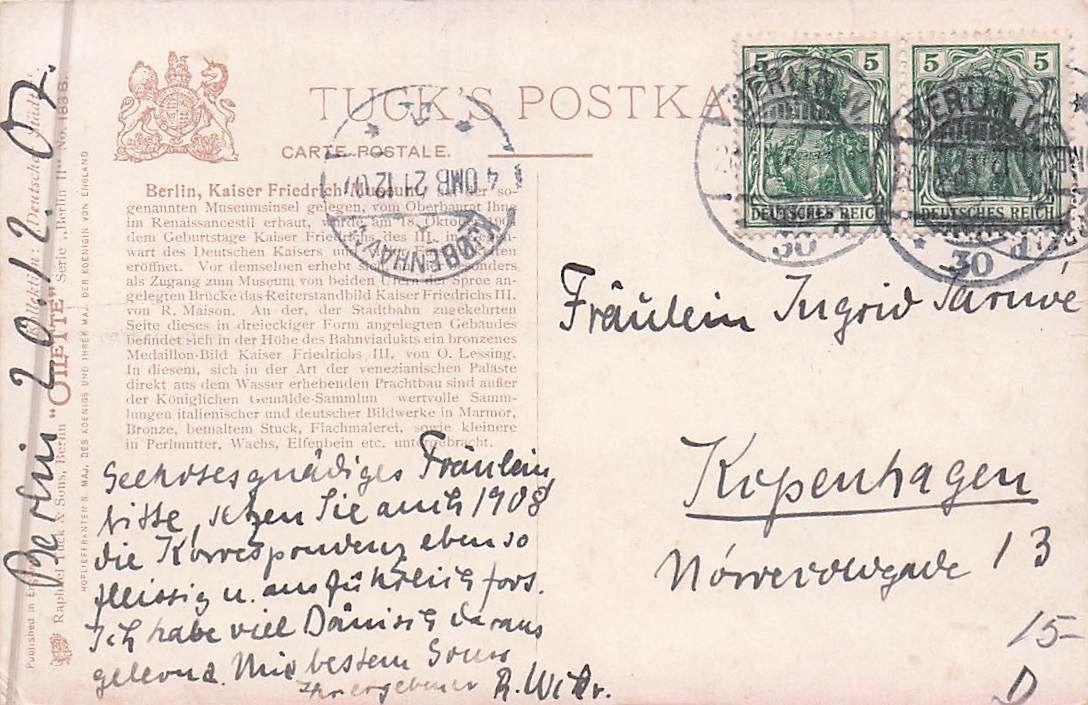 TUCK'S POSTKA
CARTE POSTALE.
Berlin, Kaiser Friedrich Museum, der so-
genannten Museumsinsel gelegen, vom Oberbaurat Ihne
im Renaissancestil erbaut, am 18. Oktober
dem Geburtstage Kaiser Friedrichs des III.
wart des Deutschen Kaisers
eröffnet. Vor demselben erhebt sich
als Zugang zum Museum von beiden Ufern der Spree an-
gelegten Brücke das Reiterstandbild Kaiser Friedrichs III.
von R. Maison. An der, der Stadtbahn zugekehrten
Seite dieses in dreieckiger Form angelegten Gebäudes
befindet sich in der Höhe des Bahnviadukts ein bronzenes
Medaillon-Bild Kaiser Friedrichs III. von O. Lessing.
In diesem, sich in der Art der venezianischen Paläste
direkt aus dem Wasser erhebenden Prachtbau sind außer
der Königlichen Gemälde-Sammlun wertvolle Samm-
lungen italienischer und deutscher Bildwerke in Marmor,
Bronze, bemaltem Stuck, Flachmalerei, sowie kleinere
in Perlmutter, Wachs, Elfenbein etc. untergebracht.
Fräulein
bitte, setzen Sie auch 1908
die Korrespondenz ebenso
fleissig u. ausführlich fort.
Ich habe viel Dänisch daraus
gelernt. Mit bestem Gruss
Ihr ergebener R.
Berlin 20.12.07.
Published in
Raphael Tuck & Sons, Berlin "OILETTE" Serie „Berlin II" No. 183 B.
Kollektion: Deutsche Städte
HOFLIEFERANTEN S. MAJ. DES KOENIGS UND IHRER MAJ. DER KOENIGIN VON ENGLAND
KJØBENHAVN
4 OMB 21.12.07
5 5
DEUTSCHES REICH
5 5
DEUTSCHES REICH
BERLIN.W.
30
BERLIN.W.
30
Fräulein Ingrid
Kopenhagen
13
15-
D